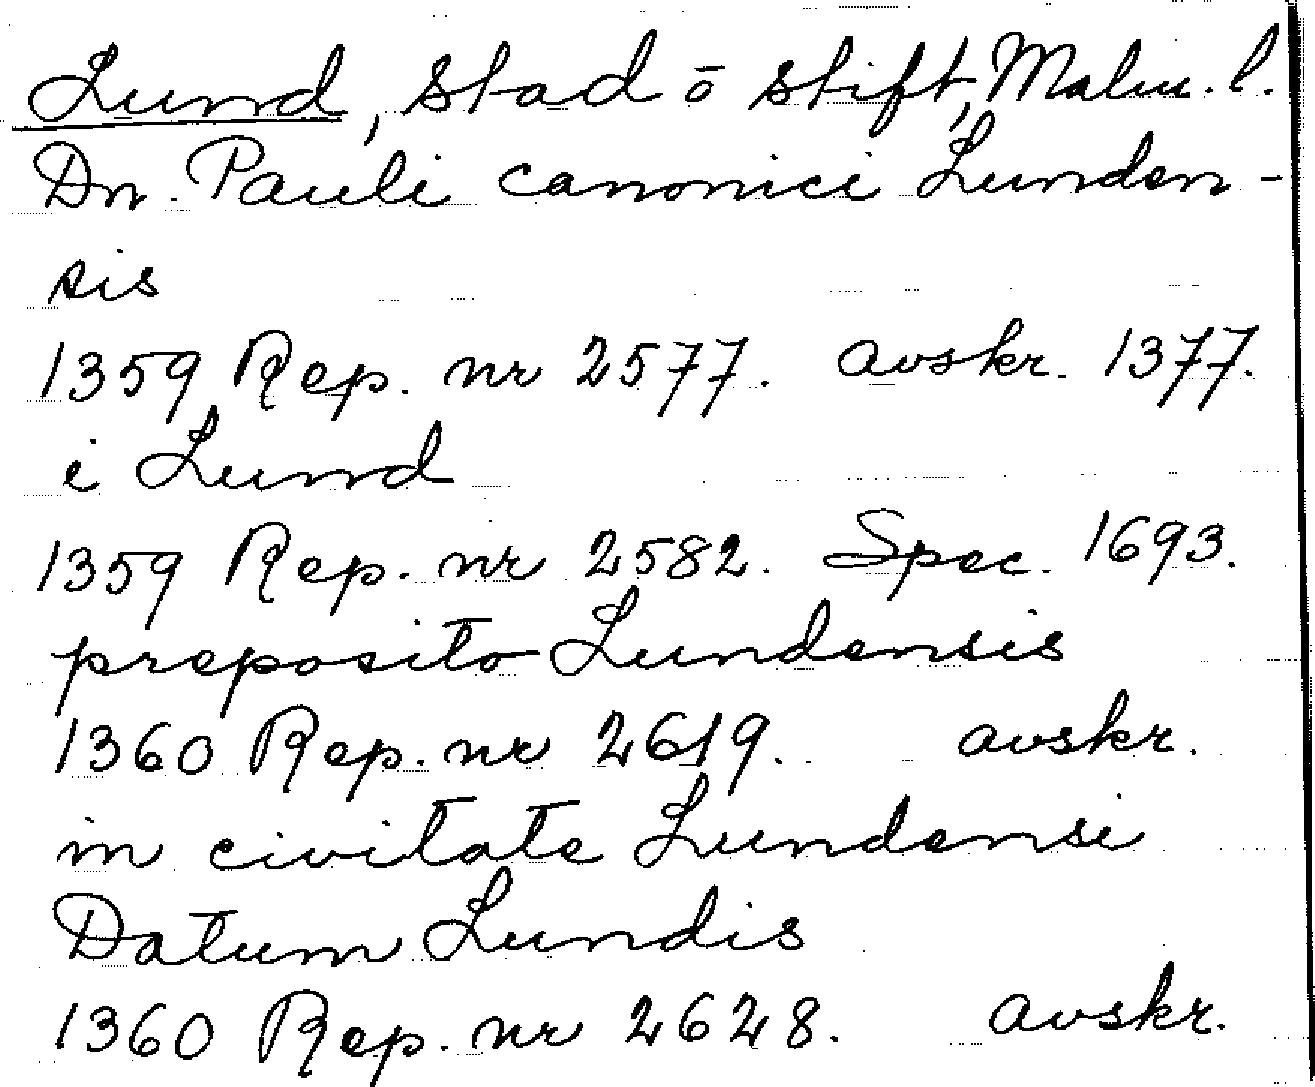 Lund, stad ō stift, Malm. l.
Dn. Pauli canonici Lunden-
sis
1359 Rep. nr 2577. avskr. 1377.
i Lund
1359 Rep. nr 2582. Spec. 1693.
preposito Lundensis
1360 Rep. nr 2619. avskr.
in civitate Lundensi
Datum Lundis
1360 Rep. nr 2628. avskr.